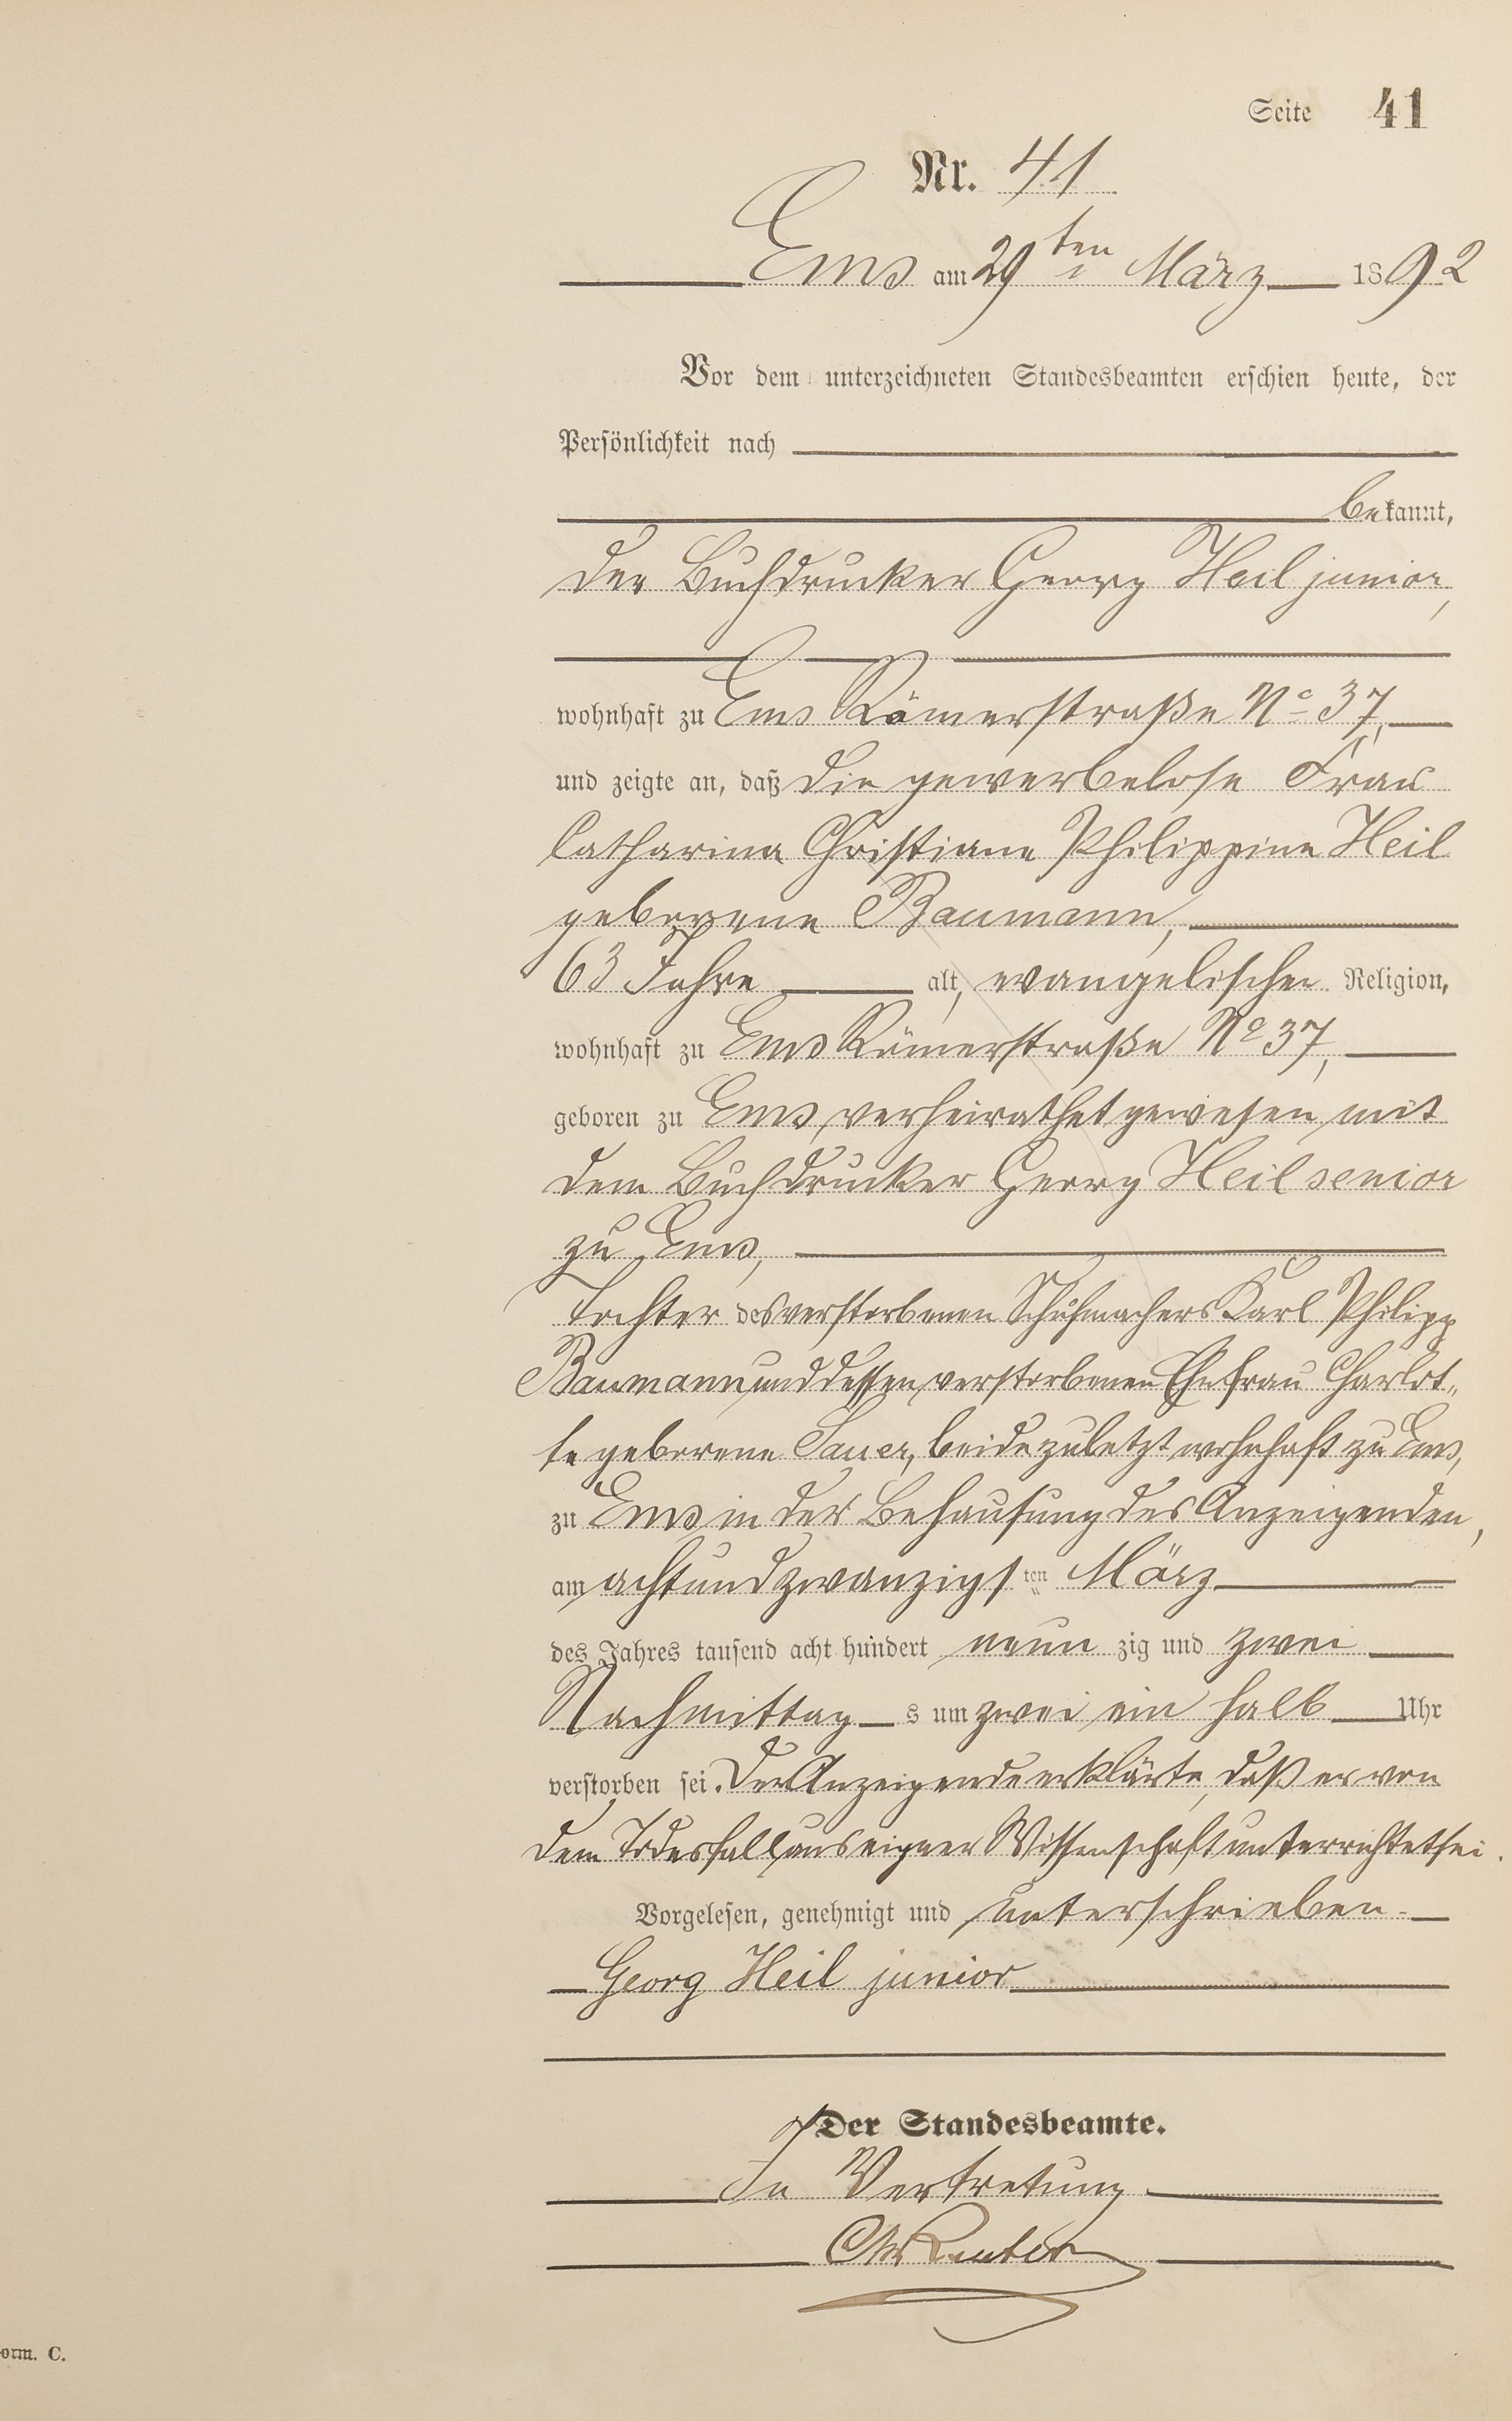 Seite 41
Nr. 41
Ems am 29ten März 1892
Vor dem unterzeichneten Standesbeamten erschien heute, der
Persönlichkeit nach
bekannt,
der Buchdrucker Georg Heil junior,
wohnhaft zu Ems Römerstraße No 37,
und zeigte an, daß die gewerbelose Frau
Catharina Christiane Philippine Heil
geborene Baumann,
63 Jahre alt, evangelischer Religion,
wohnhaft zu Ems Römerstraße No 37,
geboren zu Ems, verheirathet gewesen mit
dem Buchdrucker Georg Heil senior
zu Ems,
Tochter des verstorbenen Schuhmachers Karl Philipp
Baumann und dessen verstorbenen Ehefrau Charlot„
te geborene Sauer, beide zuletzt wohnhaft zu Ems,
zu Ems in der Behausung des Anzeigenden,
am achtundzwanzigsten März
des Jahres tausend acht hundert neun zig und zwei
Nachmittag s um zwei ein halb Uhr
verstorben sei. Der Anzeigende erklärte, daß er von
dem Todesfall aus eigner Wissenschaft unterrichtet sei.
Vorgelesen, genehmigt und unterschrieben.
Georg Heil junior
Der Standesbeamte.
In Vertretung
orm. C.